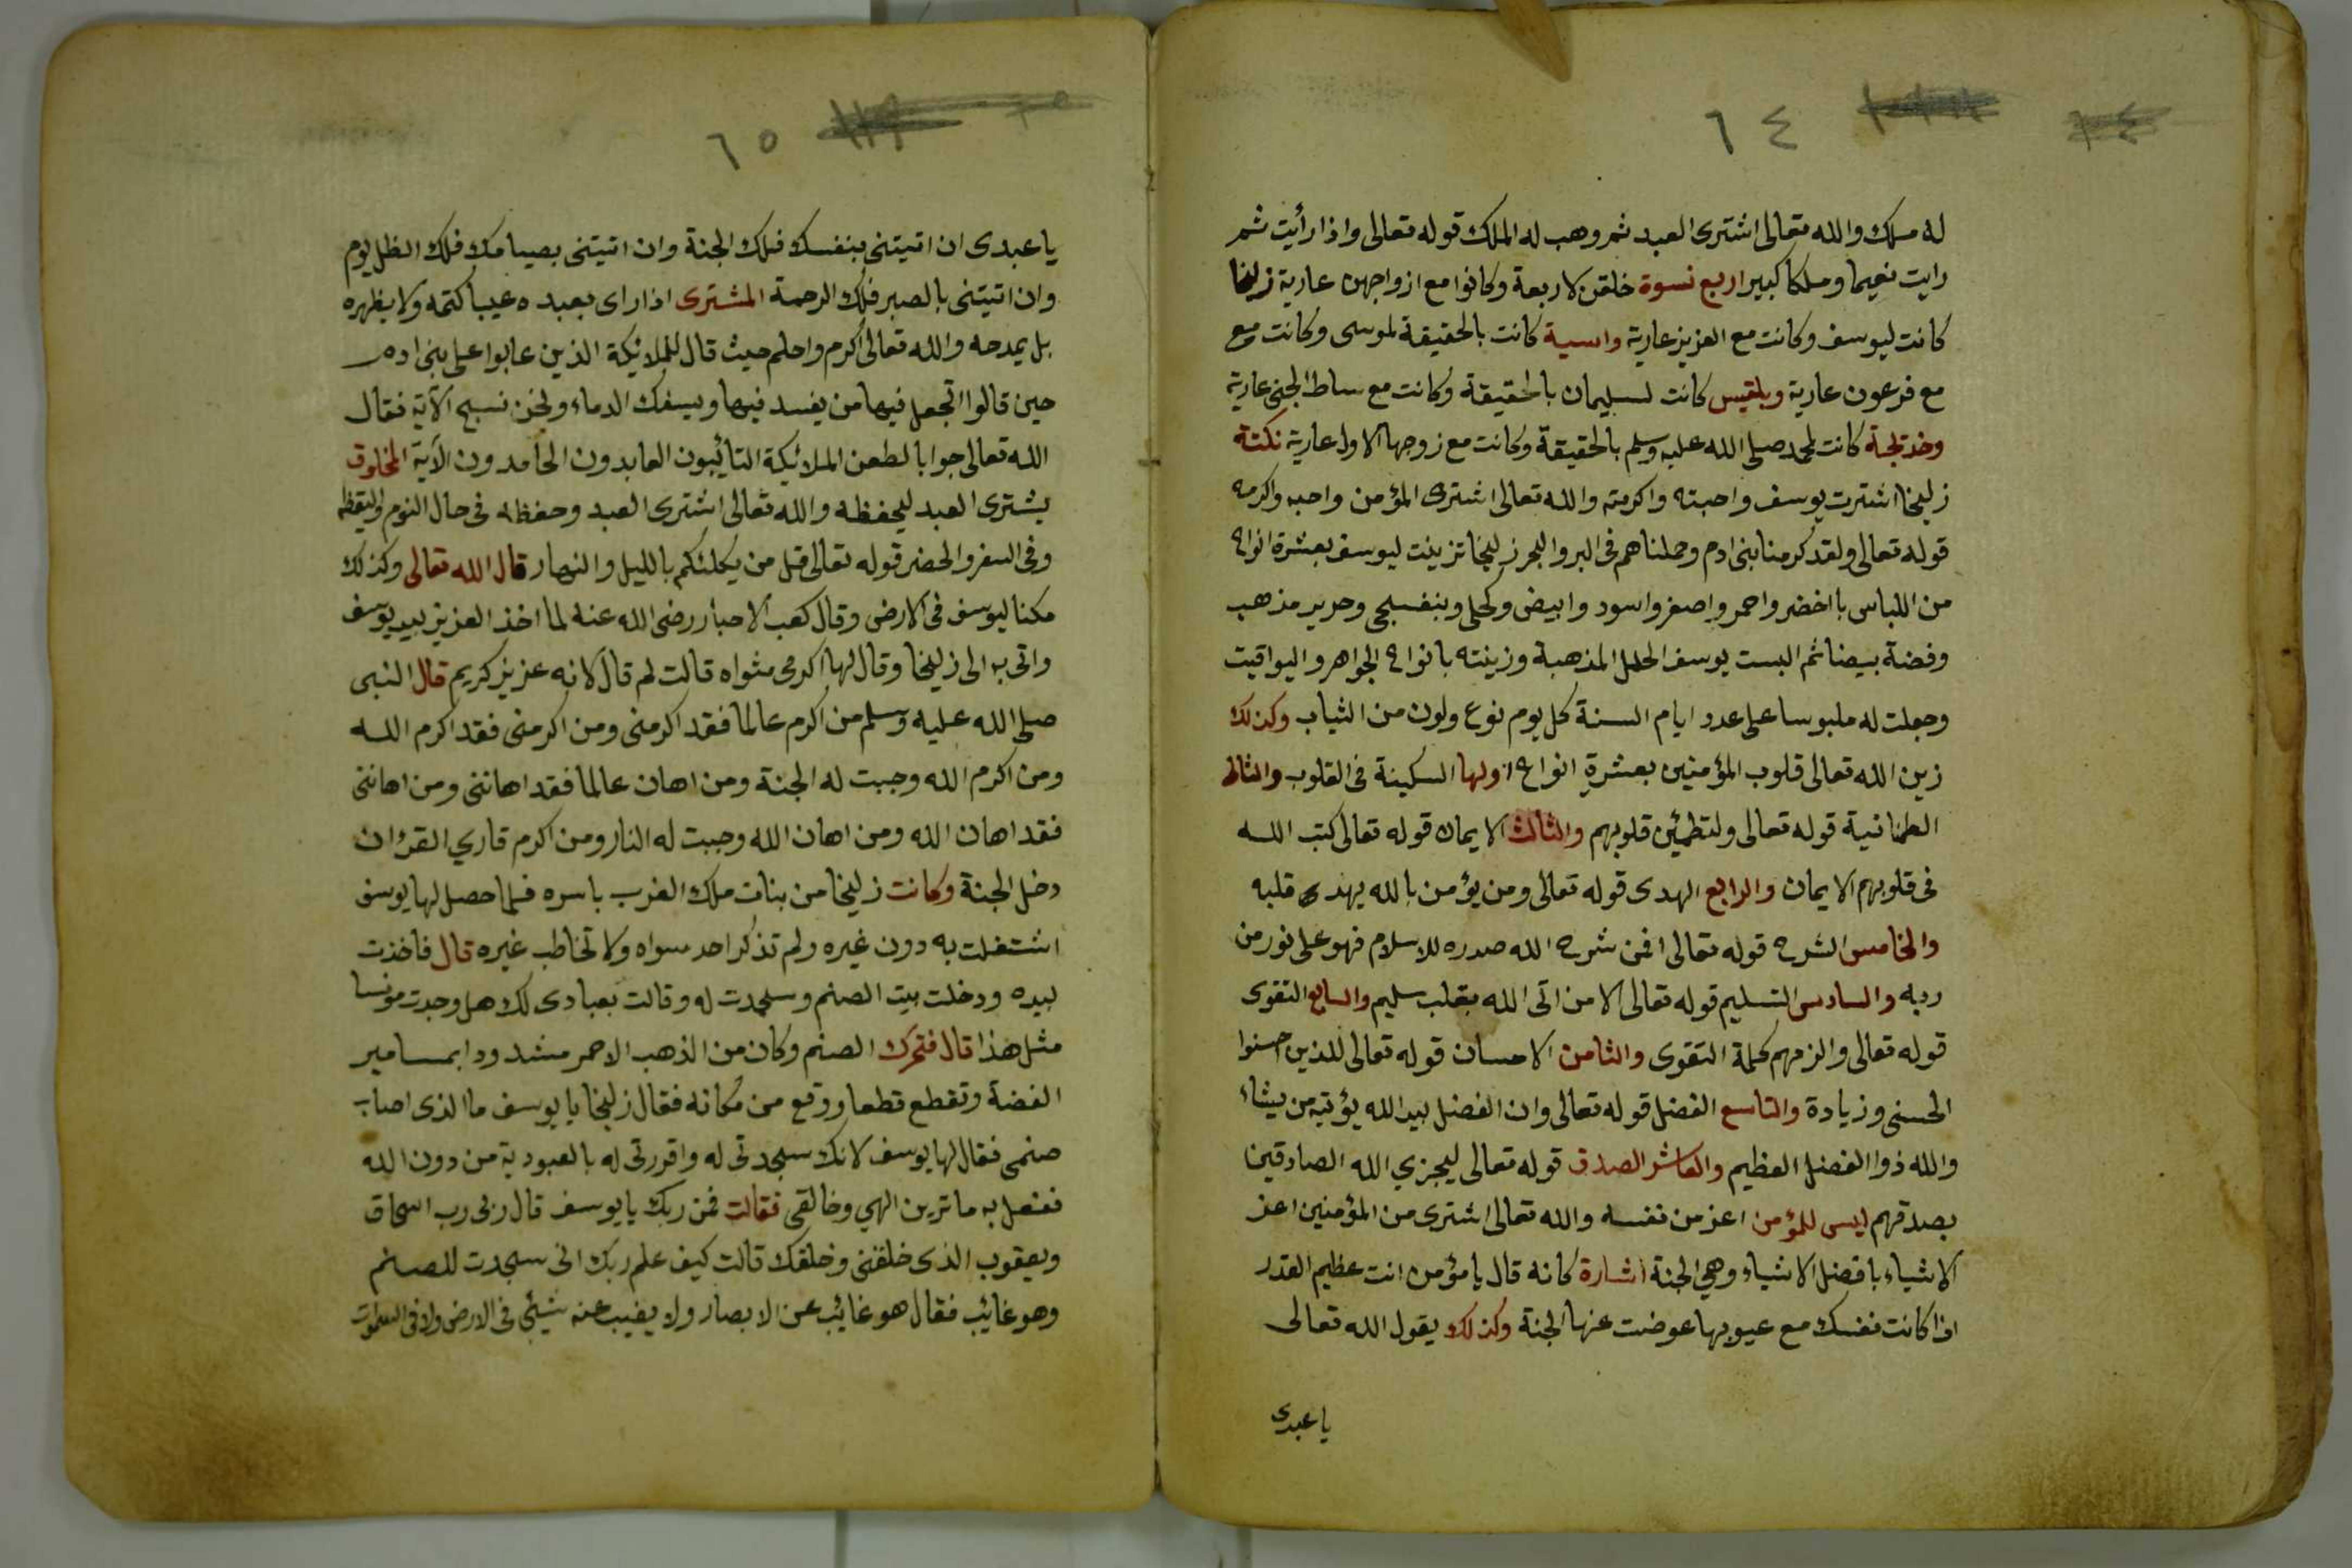 ٦٤
له ملك والله تعالى اشترى العبد ثم وهب له الملك قوله تعالى واذا رأيت ثم
رايت نعيما وملكا كبيرا اربع نسوة خلقن لاربعة وكانوا مع ازواجهن عارية زليخا
كانت ليوسف وكانت مع العزيز عارية واسية كانت بالحقيقة لموسى وكانت مع
مع فرعون عارية وبلقيس كانت لسليمان بالحقيقة وكانت مع ساط الجنى عارية
وخديجة كانت لمحمد صلى الله عليه وسلم بالحقيقة وكانت مع زوجها الاول عارية نكتة
زليخا اشترت يوسف واحبته واكرمته والله تعالى اشترى المؤمن واحبه واكرمه
قوله تعالى ولقد كرمنا بنى ادم وحملناهم فى البر والبحر زليخا تزينت ليوسف بعشرة انواع
من اللباس با اخضر واحمر واصفر واسود وابيض وكحلى وبنفسجى وحرير مذهب
وفضة بيضا ثم البست يوسف الحلل المذهبة وزينته بانواع الجواهر واليواقيت
وجعلت له ملبوسا على عدد ايام السنة كل يوم نوع ولون من الثياب وكذلك
زين الله تعالى قلوب المؤمنين بعشرة انواع اولها السكينة فى القلوب والثانى
الطمانية قوله تعالى ولتطمئن قلوبهم والثالث الايمان قوله تعالى كتب الله
فى قلوبهم الايمان والرابع الهدى قوله تعالى ومن يؤمن بالله يهدى قلبه
والخامس الشرح قوله تعالى افمن شرح الله صدره للاسلام فهو على نور من
ربه والسادس التسليم قوله تعالى الا من اتى الله بقلب سليم والسابع التقوى
قوله تعالى والزمهم كلمة التقوى والثامن الاحسان قوله تعالى للذين احسنوا
الحسنى وزيادة والتاسع الفضل قوله تعالى وان الفضل بيد الله يؤتيه من يشاء
والله ذوا الفضل العظيم والعاشر الصدق قوله تعالى ليجزي الله الصادقين
بصدقهم ليس للمؤمن اعز من نفسه والله تعالى اشترى من المؤمنين اعز
الاشياء بافضل الاشياء وهي الجنة اشارة كانه قال يا مؤمن انت عظيم القدر
اذا كانت نفسك مع عيوبها عوضت عنها الجنة وكذلك يقول الله تعالى
يا عبدى
٦٥
يا عبدى ان اتيتنى بنفسك فلك الجنة وان اتيتنى بصيامك فلك الظل يوم
وان اتيتنى بالصبر فلك الرحمة المشترى اذا راى بعبده عيبا كتمه ولا يظهره
بل يمدحه والله تعالى اكرم واحلم حيث قال للملائيكة الذين عابوا على بنى ادم
حين قالوا اتجعل فيها من يفسد فيها ويسفك الدماء ونحن نسبح الآية فقال
الله تعالى جوابا لطعن الملائيكة التائيبون العابدون الحامدون الآية المخلوق
يشترى العبد ليحفظه والله تعالى اشترى العبد وحفظه فى حال النوم واليقظه
وفى السفر والحضر قوله تعالى قل من يكلئكم بالليل والنهار قال الله تعالى وكذلك
مكنا ليوسف فى الارض وقال كعب الاحبار رضى الله عنه لما اخذ العزيز بيد يوسف
واتى به الى زليخا وقال لها اكرمى مثواه قالت لم قال لانه عزيز كريم قال النبى
صلى الله عليه وسلم من اكرم عالما فقد اكرمنى ومن اكرمنى فقد اكرم الله
ومن اكرم الله وجبت له الجنة ومن اهان عالما فقد اهاننى ومن اهاننى
فقد اهان الله ومن اهان الله وجبت له النار ومن اكرم قاري القرءان
دخل الجنة وكانت زليخا من بنات ملك الغرب باسره فلما حصل لها يوسف
اشتغلت به دون غيره ولم تذكر احد سواه ولا تخاطب غيره قال فاخذت
بيده ودخلت بيت الصنم وسجدت له وقالت بعبادى لك هل وجدت مونسا
مثل هذا قال فتحرك الصنم وكان من الذهب الاحمر مشدودا بمسامير
الفضة وتقطع قطعا ووقع من مكانه فقال زليخا يا يوسف ما الذى اصاب
صنمى فقال لها يوسف لانك سجدتى له واقررتى له بالعبودية من دون الله
ففعل به ما ترين الهي وخالقى فقالت فمن ربك يا يوسف قال ربى رب اسحاق
ويعقوب الذى خلقنى وخلقك قالت كيف علم ربك انى سجدت للصنم
وهو غائيب فقال هو غائيب عن الابصار ولا يغيب عنه شيئى فى الارض ولا فى السموات